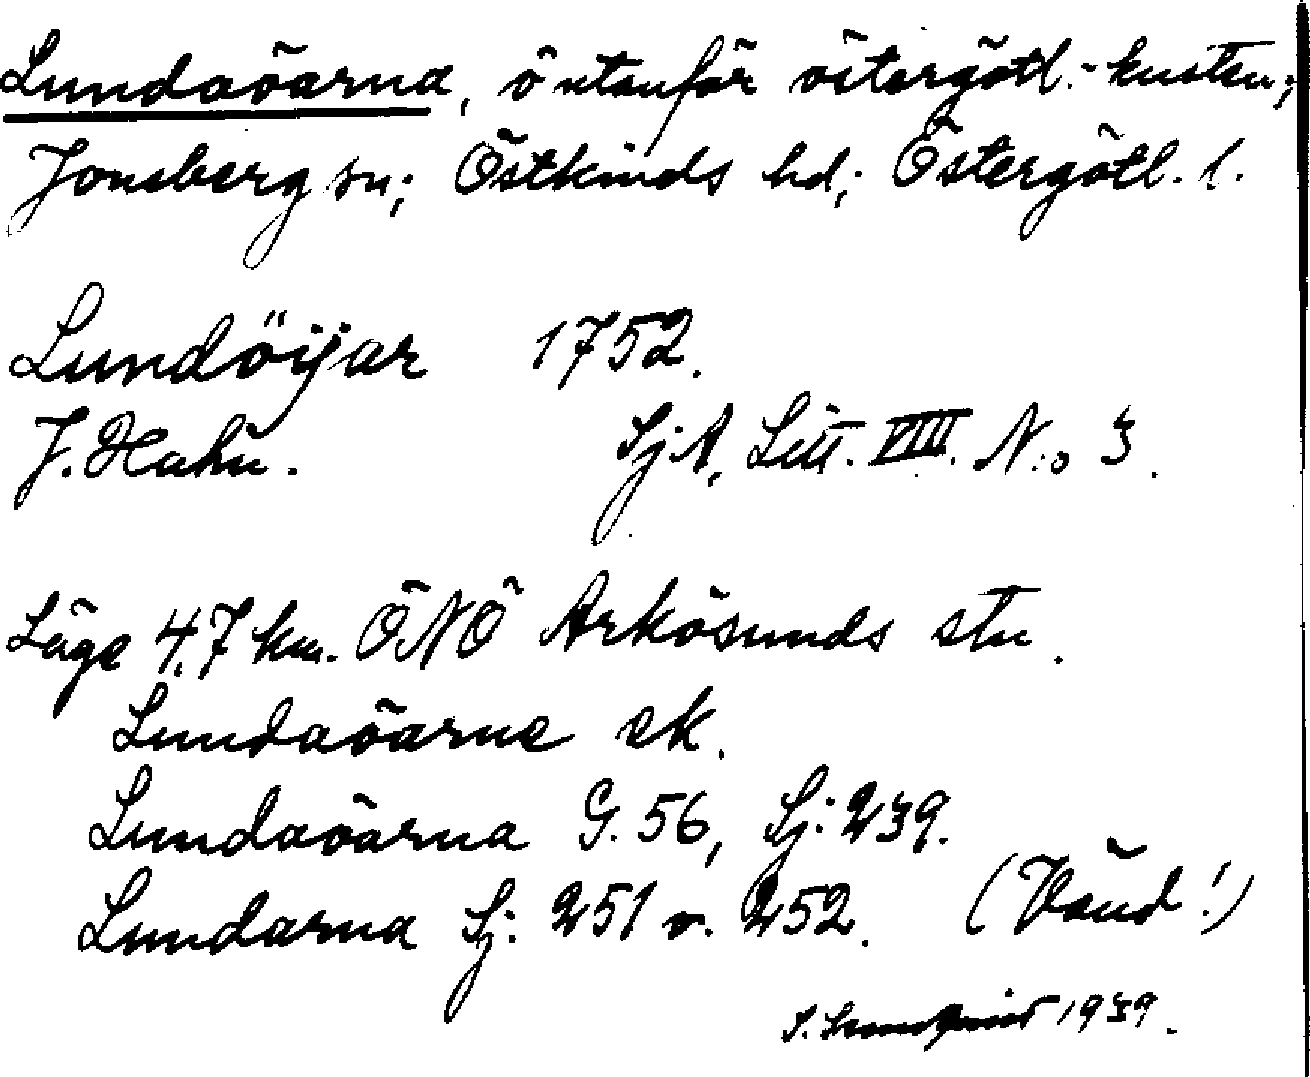 Lundaöarna, ö utanför östergötl.-kusten;
Jonsberg sn; Östkinds hd; Östergötl. l.
Lundöijar 1752.
J. Hahn. SjA, Litt. VIII. N:o 3.
Läge 4,7 km. ÖNÖ Arkösunds stn.
Lundaöarne ek.
Lundaöarna G. 56, Sj: 239.
Lundarna Sj. 251 o. 252. (Vänd!)
1939.